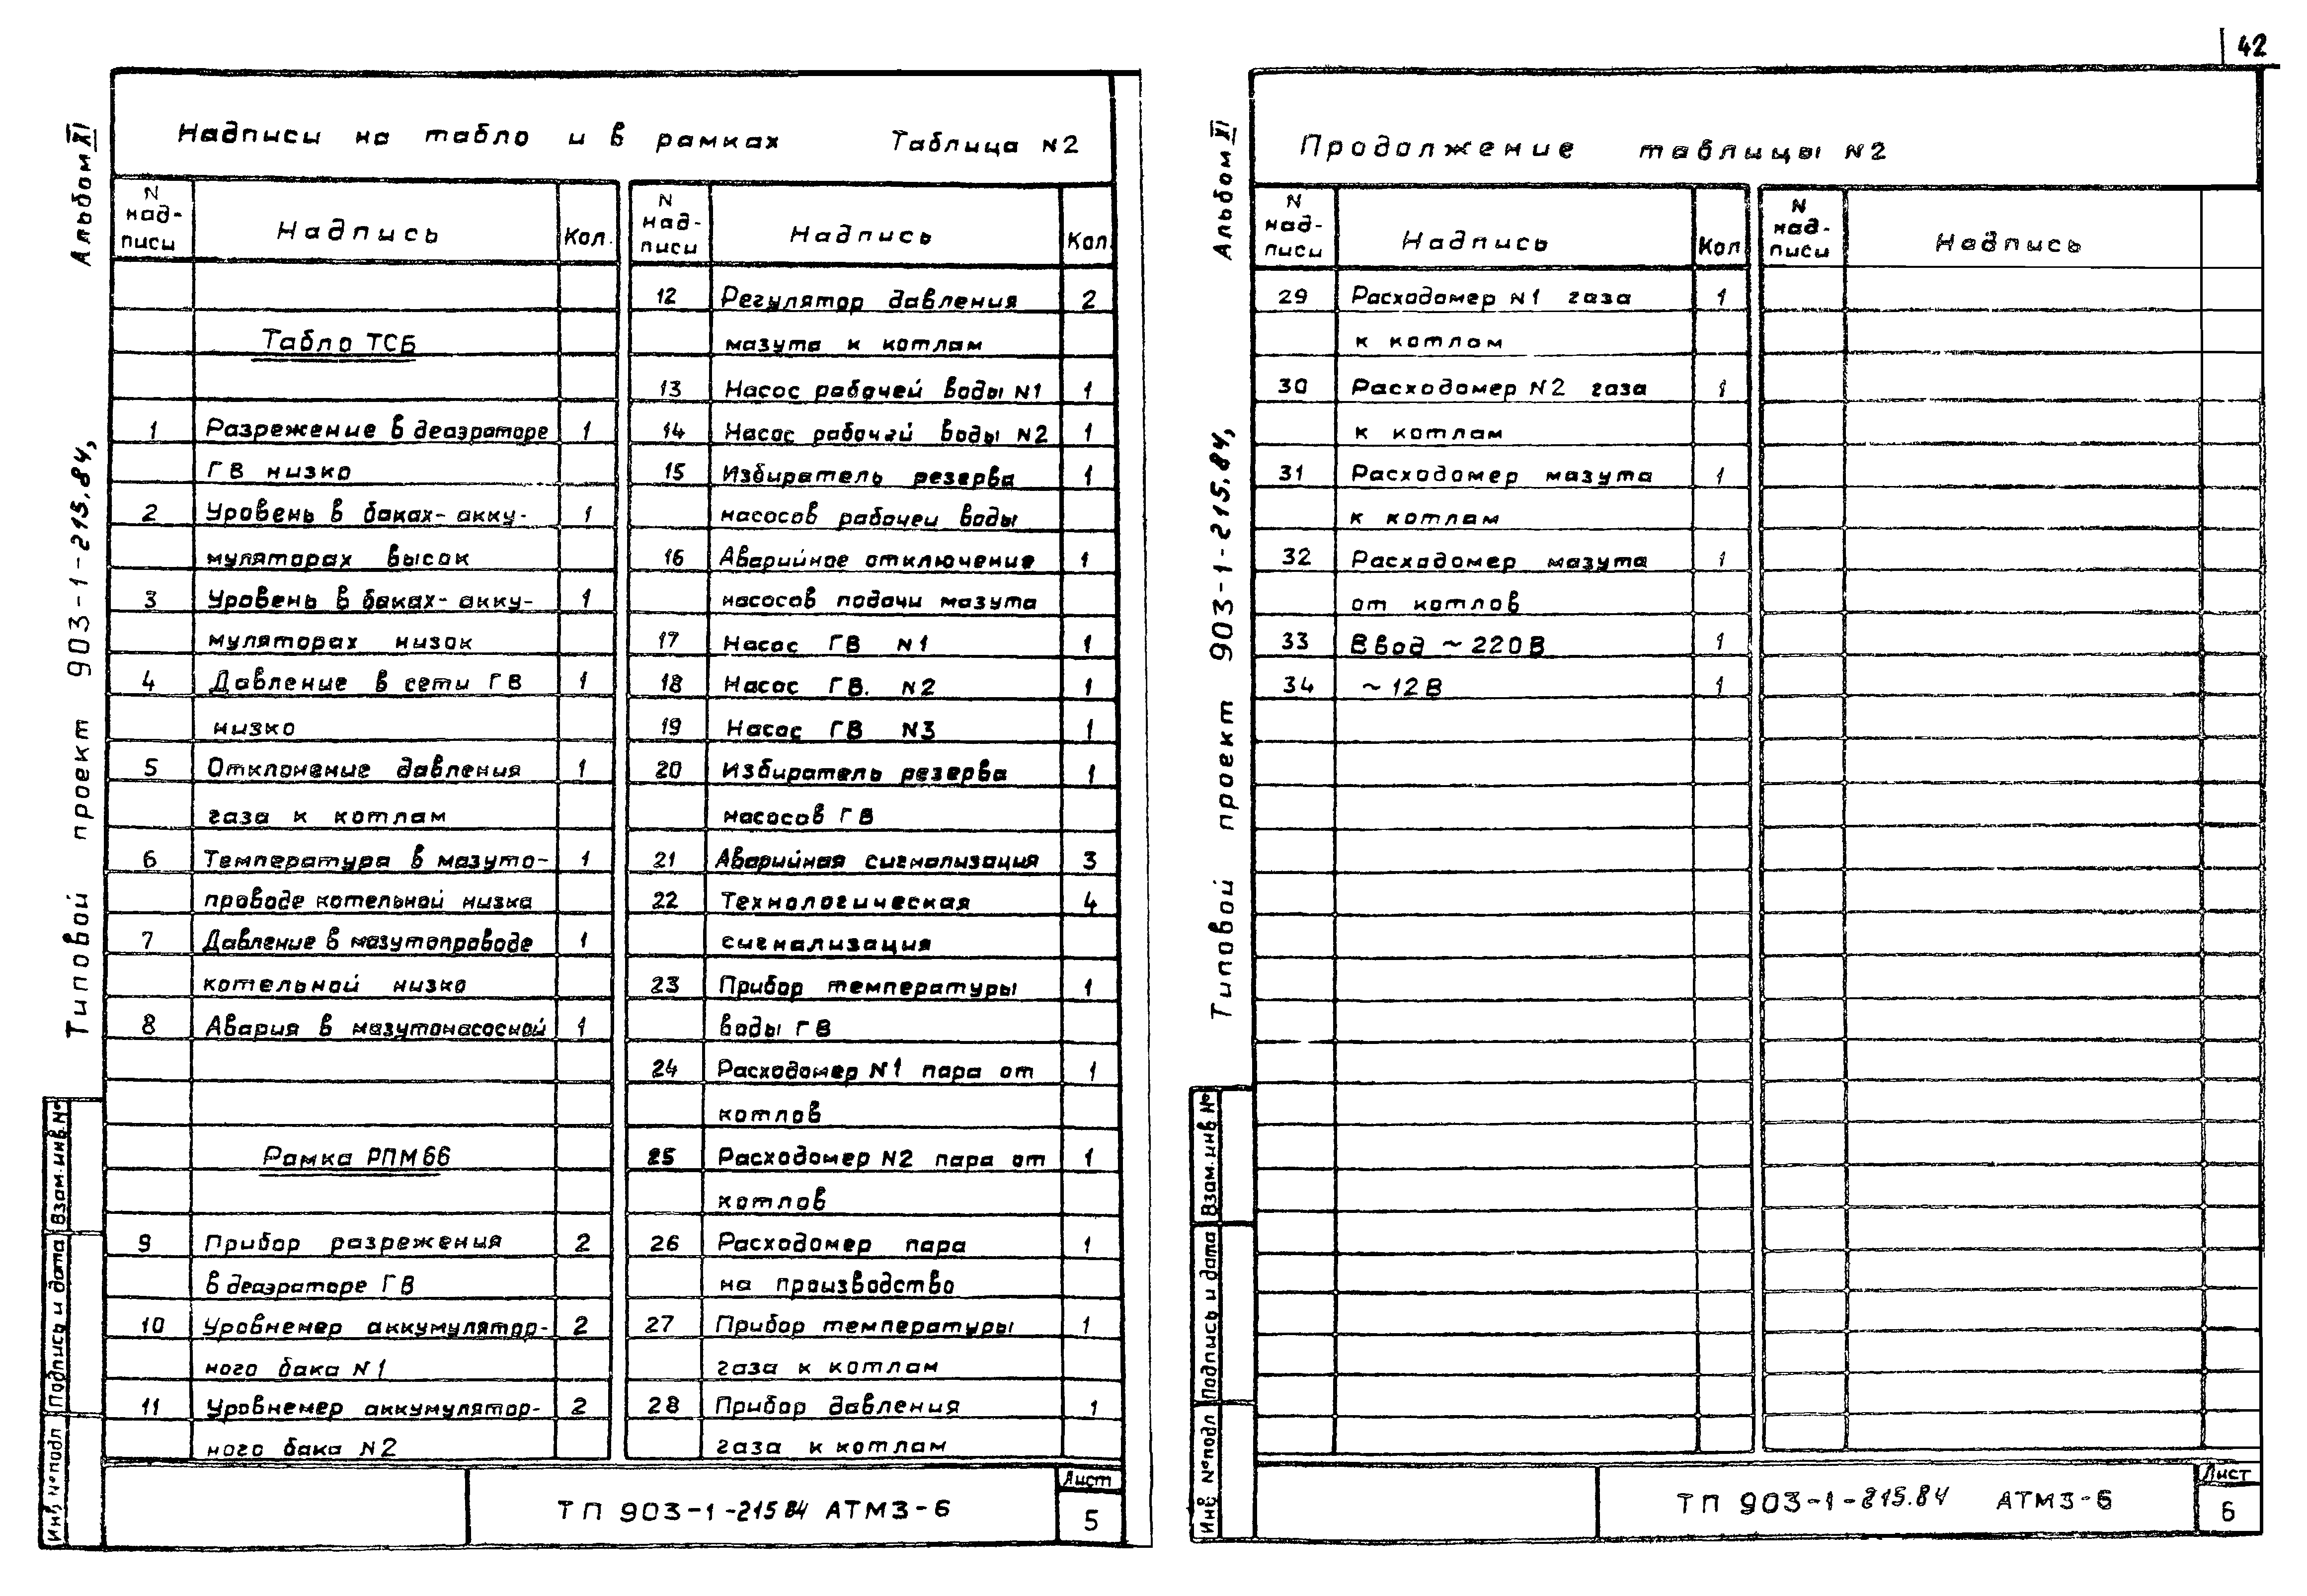 42
Надписи на табло и в рамках Таблица N2
N надписи Надпись Кол.
Табло ТСБ
1 Разрежение в деаэраторе 1
ГВ низко
2 Уровень в баках-акку- 1
муляторах высок
3 Уровень в баках-акку- 1
муляторах низок
4 Давление в сети ГВ 1
низко
5 Отклонение давления 1
газа к котлам
6 Температура в мазуто- 1
проводе котельной низка
7 Давление в мазутопроводе 1
котельной низко
8 Авария в мазутонасосной 1
Рамка РПМ66
9 Прибор разрежения 2
в деаэраторе ГВ
10 Уровнемер аккумулятор- 2
ного бака N1
11 Уровнемер аккумулятор- 2
ного бака N2
N над-писи Надпись Кол.
12 Регулятор давления 2
мазута к котлам
13 Насос рабочей воды N1 1
14 Насос рабочей воды N2 1
15 Избиратель резерва 1
насосов рабочей воды
16 Аварийное отключение 1
насосов подачи мазута
17 Насос ГВ N1 1
18 Насос ГВ. N2 1
19 Насос ГВ N3 1
20 Избиратель резерва 1
насосов ГВ
21 Аварийная сигнализация 3
22 Технологическая 4
сигнализация
23 Прибор температуры 1
воды ГВ
24 Расходомер N1 пара от 1
котлов
25 Расходомер N2 пара от 1
котлов
26 Расходомер пара 1
на производство
27 Прибор температуры 1
газа к котлам
28 Прибор давления 1
газа к котлам
ТП 903-1-215 84 АТМ3-6
Лист
5
Альбом XI
Типовой проект 903-1-215.84,
Взам. инв №
Подпись и дата
Инв № подл
Продолжение таблицы N2
N над-писи Надпись Кол
29 Расходомер N1 газа 1
к котлам
30 Расходомер N2 газа 1
к котлам
31 Расходомер мазута 1
к котлам
32 Расходомер мазута 1
от котлов
33 Ввод ~ 220 В 1
34 ~ 12 В 1
N над-писи Надпись
ТП 903-1-215.84 АТМ3-6
Лист
6
Альбом XI
Типовой проект 903-1-215.84,
Взам. инв №
Подпись и дата
Инв № подл